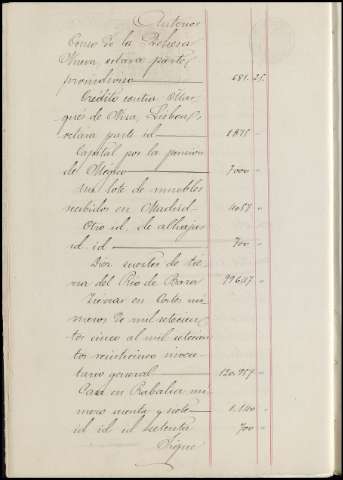 Anterior
Censo de la Dehesa
Nueva, octava parte
proindiviso 681.25
Crédito contra Mar-
qués de Nisa, Lisboa,
octava parte id 1875 "
Capital por la pension
de 7000 "
Un lote de muebles
recibidos en Madrid "
Otro id. de alhajas
id. id 700 "
Diez suertes de tie-
rra del Pico de Barro
Tierras en Cortes nú-
meros de mil setecien-
tos cinco al mil setecien-
tos veinticinco inven-
tario general 120.957 "
Casa en Rabalia nú-
mero y siete 1.140 "
id id id setenta 700 "
Sigue